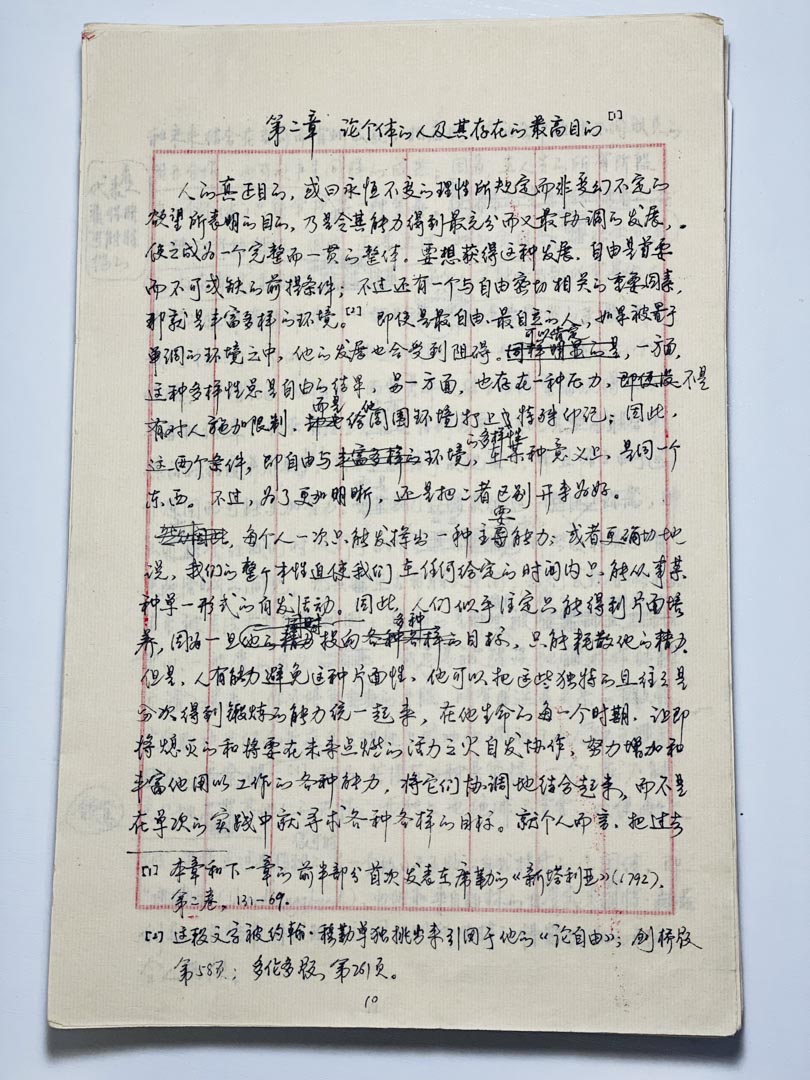 第二章 论个体的人及其存在的最高目的[1]
人的真正目的，或曰永恒不变的理性所规定而非变幻不定的
欲望所表明的目的，乃是令其能力得到最充分而又最协调的发展，
使之成为一个完整而一贯的整体。要想获得这种发展，自由是首要
而不可或缺的前提条件；不过还有一个与自由密切相关的重要因素，
那就是丰富多样的环境。[2] 即使是最自由、最自立的人，如果被置于
单调的环境之中，他的发展也会受到阻碍。可以断言，一方面，
这种多样性总是自由的结果，另一方面，也存在一种压力，不是
有对人施加限制，而是给他周围环境打上特殊印记；因此，
这两个条件，即自由与环境的多样性，在某种意义上，是同一个
东西。不过，为了更加明晰，还是把二者区别开来为好。
每个人一次只能发挥出一种主要能力；或者更确切地
说，我们的整个本性迫使我们在任何给定的时间内只能从事某
种单一形式的自发活动。因此，人们似乎注定只能得到片面培
养，因为一旦他的精力同时投向多种目标，只能耗散他的精力。
但是，人有能力避免这种片面性，他可以把这些独特的且往往是
分次得到锻炼的能力统一起来，在他生命的每一个时期，让即
将熄灭的和将要在未来点燃的活力之火自发协作，努力增加和
丰富他用以工作的各种能力，将它们协调地结合起来，而不是
在单次的实践中就寻求各种各样的目标。就个人而言，把过去
[1] 本章和下一章的前半部分首次发表在席勒的《新塔利亚》(1792)，
第二卷，131-69。
[2] 这段文字被约翰·穆勒单独挑出来引用于他的《论自由》；剑桥版
第58页；多伦多版，第261页。
10